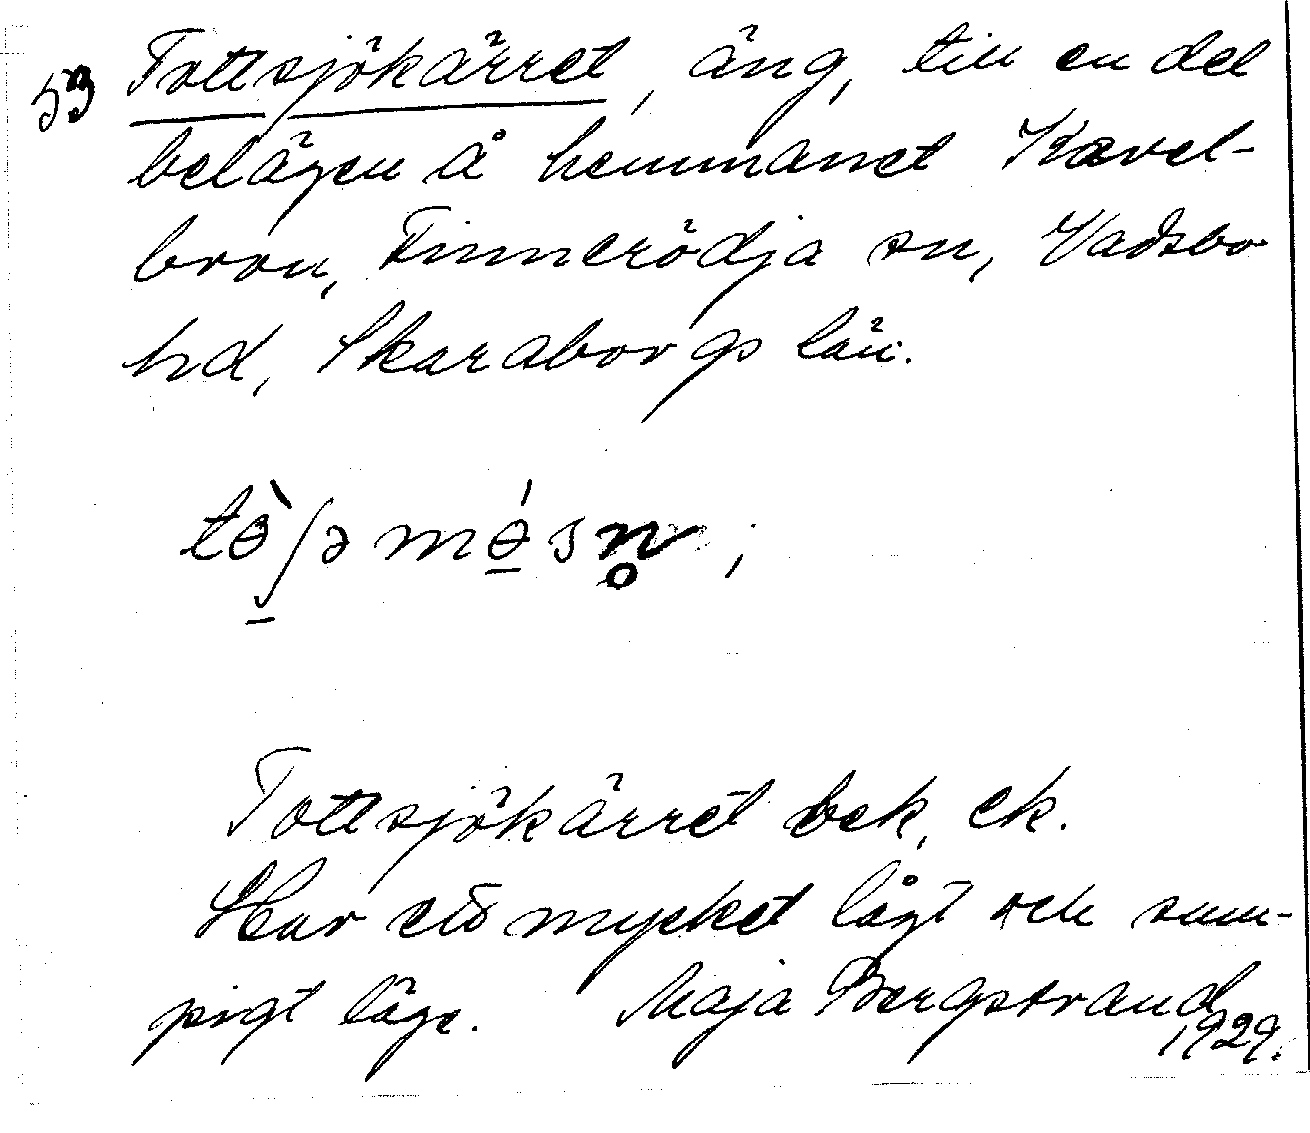 53 Tottsjökärret, äng, till en del
belägen å hemmanet Kavel-
bron, Finnerödja sn, Vadsbo
hd, Skaraborgs län.
Tottsjökärret bek, ek.
Har ett mycket lågt och sum-
pigt läge. Maja Bergstrand
1929.